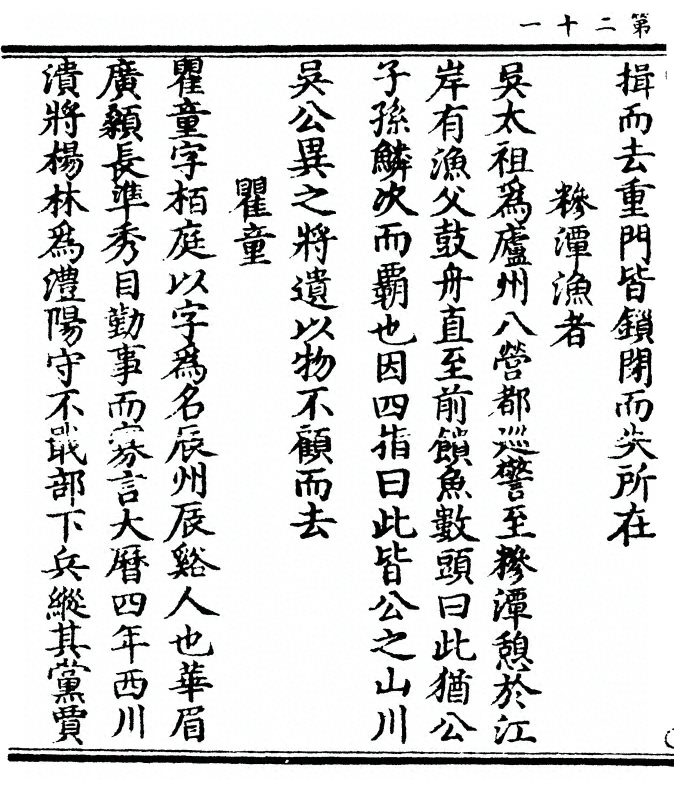 第二十一
揖而去重門皆鎖閉而失所在
糝潭漁者
吳太祖爲廬州八營都巡警至糝潭憩於江
岸有漁父鼓舟直至前饋魚數頭曰此猶公
子孫鱗次而霸也因四指曰此皆公之山川
吳公異之將遺以物不顧而去
瞿童
瞿童字栢庭以字爲名辰州辰谿人也華眉
廣顙長準秀目勤事而寡言大曆四年西川
潰將楊林爲澧陽守不戢部下兵縱其黨賈